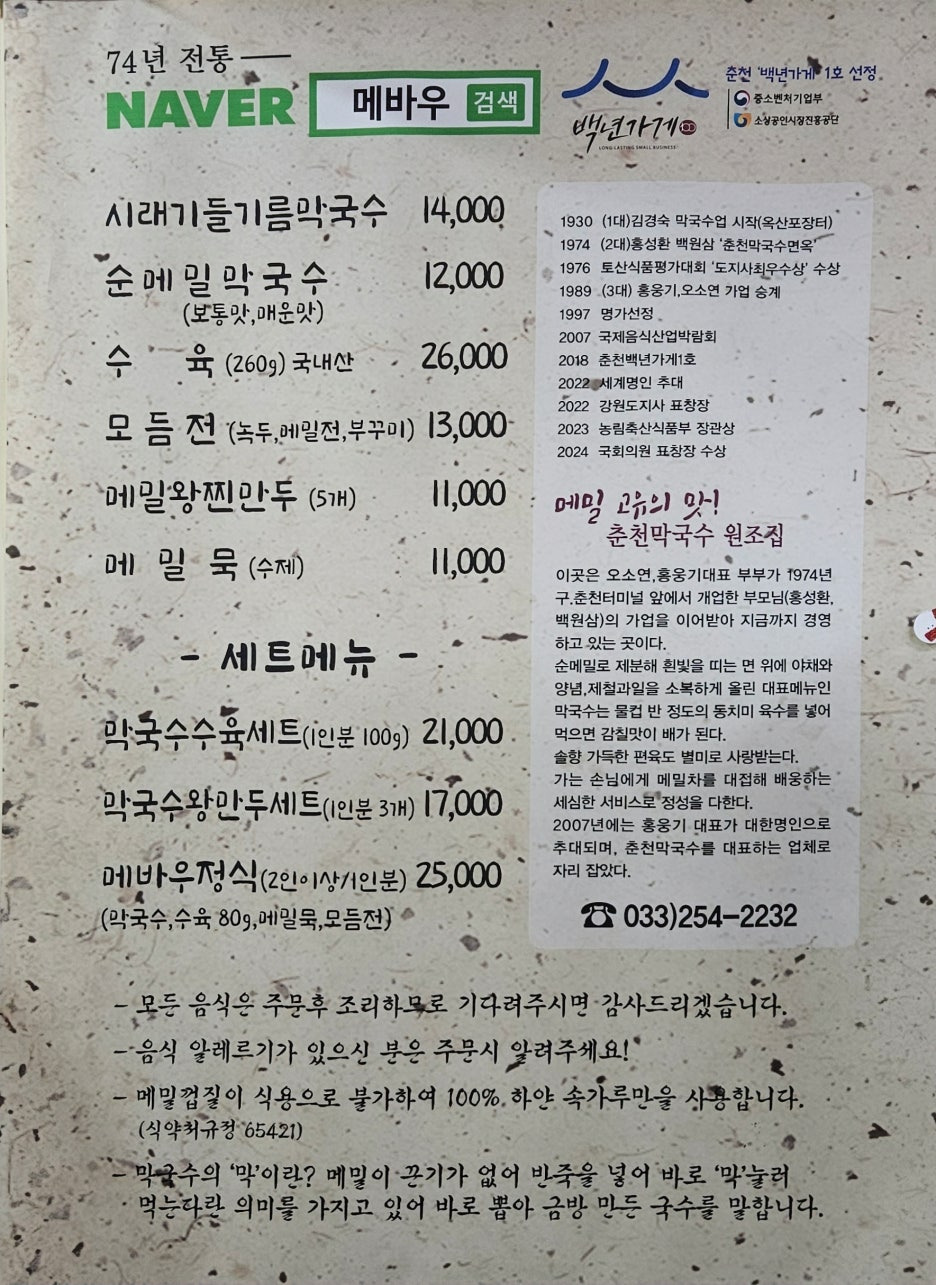 74년 전통
NAVER 메바우 검색
백년가게
LONG LASTING SMALL BUSINESS
춘천 '백년가게' 1호 선정
중소벤처기업부
소상공인시장진흥공단
시래기들기름막국수 14,000
순메밀막국수 12,000
(보통맛,매운맛)
수 육 (260g) 국내산 26,000
모듬전 (녹두,메밀전,부꾸미) 13,000
메밀왕찐만두 (5개) 11,000
메밀묵 (수제) 11,000
- 세트메뉴 -
막국수수육세트(1인분 100g) 21,000
막국수왕만두세트(1인분 3개) 17,000
메바우정식(2인이상/1인분) 25,000
(막국수,수육 80g,메밀묵,모듬전)
1930 (1대)김경숙 막국수업 시작(옥산포장터)
1974 (2대)홍성환 백원삼 '춘천막국수면옥'
1976 토산식품평가대회 '도지사최우수상' 수상
1989 (3대) 홍웅기,오소연 가업 승계
1997 명가선정
2007 국제음식산업박람회
2018 춘천백년가게1호
2022 세계명인 추대
2022 강원도지사 표창장
2023 농림축산식품부 장관상
2024 국회의원 표창장 수상
메밀 고유의 맛!
춘천막국수 원조집
이곳은 오소연,홍웅기대표 부부가 1974년
구.춘천터미널 앞에서 개업한 부모님(홍성환,
백원삼)의 가업을 이어받아 지금까지 경영
하고 있는 곳이다.
순메밀로 제분해 흰빛을 띠는 면 위에 야채와
양념,제철과일을 소복하게 올린 대표메뉴인
막국수는 물컵 반 정도의 동치미 육수를 넣어
먹으면 감칠맛이 배가 된다.
솔향 가득한 편육도 별미로 사랑받는다.
가는 손님에게 메밀차를 대접해 배웅하는
세심한 서비스로 정성을 다한다.
2007년에는 홍웅기 대표가 대한명인으로
추대되며, 춘천막국수를 대표하는 업체로
자리 잡았다.
☎ 033)254-2232
- 모든 음식은 주문후 조리하므로 기다려주시면 감사드리겠습니다.
- 음식 알레르기가 있으신 분은 주문시 알려주세요!
- 메밀껍질이 식용으로 불가하여 100% 하얀 속가루만을 사용합니다.
(식약처규정 65421)
- 막국수의 '막'이란? 메밀이 끈기가 없어 반죽을 넣어 바로 '막'눌러
먹는다란 의미를 가지고 있어 바로 뽑아 금방 만든 국수를 말합니다.